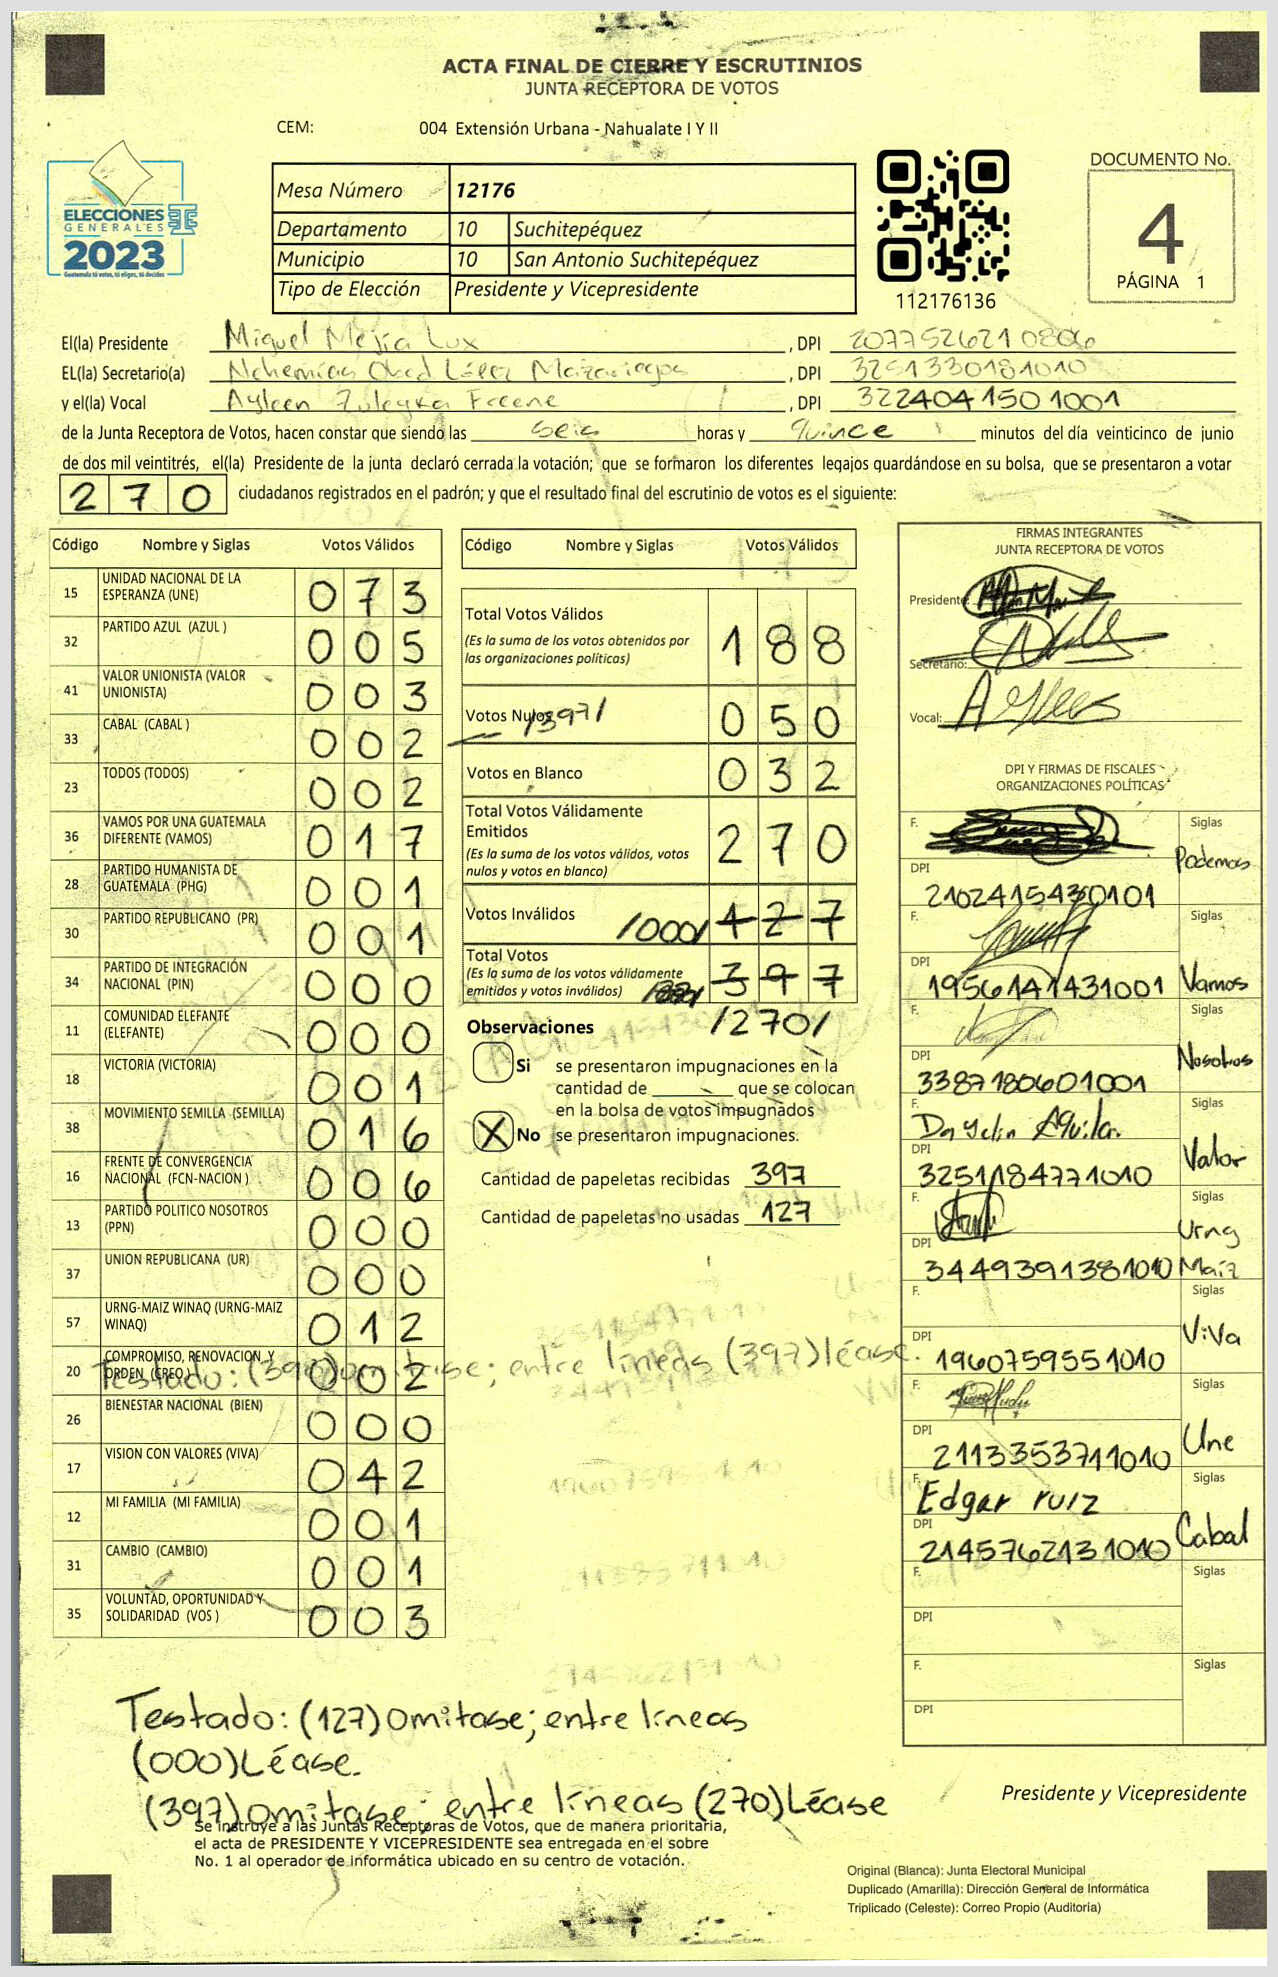 ACTA FINAL DE CIERRE Y ESCRUTINIOS
JUNTA RECEPTORA DE VOTOS
CEM: 004 Extensión Urbana - Nahualate I Y II
ELECCIONES
GENERALES
2023
Guatemala tú votas, tú eliges, tú decides
Mesa Número 12176
Departamento 10 Suchitepéquez
Municipio 10 San Antonio Suchitepéquez
Tipo de Elección Presidente y Vicepresidente
112176136
DOCUMENTO No.
4
PÁGINA 1
El(la) Presidente Miguel Mejía Lux , DPI 2077526210806
EL(la) Secretario(a) Nehemías Obed López Mazariegos , DPI 3251330181010
y el(la) Vocal Ayleen Zuleyka , DPI 3224041501001
de la Junta Receptora de Votos, hacen constar que siendo las seis horas y quince minutos del día veinticinco de junio
de dos mil veintitrés, el(la) Presidente de la junta declaró cerrada la votación; que se formaron los diferentes legajos guardándose en su bolsa, que se presentaron a votar
270 ciudadanos registrados en el padrón; y que el resultado final del escrutinio de votos es el siguiente:
Código Nombre y Siglas Votos Válidos
15 UNIDAD NACIONAL DE LA ESPERANZA (UNE) 073
32 PARTIDO AZUL (AZUL ) 005
41 VALOR UNIONISTA (VALOR UNIONISTA) 003
33 CABAL (CABAL ) 002
23 TODOS (TODOS) 002
36 VAMOS POR UNA GUATEMALA DIFERENTE (VAMOS) 017
28 PARTIDO HUMANISTA DE GUATEMALA (PHG) 001
30 PARTIDO REPUBLICANO (PR) 001
34 PARTIDO DE INTEGRACIÓN NACIONAL (PIN) 000
11 COMUNIDAD ELEFANTE (ELEFANTE) 000
18 VICTORIA (VICTORIA) 001
38 MOVIMIENTO SEMILLA (SEMILLA) 016
16 FRENTE DE CONVERGENCIA NACIONAL (FCN-NACION ) 006
13 PARTIDO POLITICO NOSOTROS (PPN) 000
37 UNION REPUBLICANA (UR) 000
57 URNG-MAIZ WINAQ (URNG-MAIZ WINAQ) 012
20 COMPROMISO, RENOVACION Y ORDEN (CREO ) 002
Testado: (390) omítase; entre líneas (397) léase.
26 BIENESTAR NACIONAL (BIEN) 000
17 VISION CON VALORES (VIVA) 042
12 MI FAMILIA (MI FAMILIA) 001
31 CAMBIO (CAMBIO) 001
35 VOLUNTAD, OPORTUNIDAD Y SOLIDARIDAD (VOS ) 003
Código Nombre y Siglas Votos Válidos
Total Votos Válidos 188
(Es la suma de los votos obtenidos por
las organizaciones políticas)
Votos Nulos /397/ 050
Votos en Blanco 032
Total Votos Válidamente
Emitidos 270
(Es la suma de los votos válidos, votos
nulos y votos en blanco)
Votos Inválidos /000/ 127
Total Votos 397
(Es la suma de los votos válidamente
emitidos y votos inválidos)
/270/
Observaciones
Si se presentaron impugnaciones en la
cantidad de ______ que se colocan
en la bolsa de votos impugnados
X No se presentaron impugnaciones.
Cantidad de papeletas recibidas 397
Cantidad de papeletas no usadas 127
FIRMAS INTEGRANTES
JUNTA RECEPTORA DE VOTOS
Presidente:
Secretario:
Vocal: Ayleen
DPI Y FIRMAS DE FISCALES
ORGANIZACIONES POLÍTICAS
F. Siglas Podemos
DPI 2102415430101
F. Siglas Vamos
DPI 1956141431001
F. Siglas Nosotros
DPI 3387180601001
F. Daylin Aguilar. Siglas Valor
DPI 3251184771010
F. Siglas Urng Maíz
DPI 3449391381010
F. Siglas ViVa
DPI 1960759551010
F. Siglas Une
DPI 2113353711010
F. Edgar ruiz Siglas Cabal
DPI 2145762131010
F. Siglas
DPI
F. Siglas
DPI
Testado: (127) omítase; entre líneas
(000) Léase.
(397) omítase; entre líneas (270) Léase
Se instruye a las Juntas Receptoras de Votos, que de manera prioritaria,
el acta de PRESIDENTE Y VICEPRESIDENTE sea entregada en el sobre
No. 1 al operador de informática ubicado en su centro de votación.
Presidente y Vicepresidente
Original (Blanca): Junta Electoral Municipal
Duplicado (Amarilla): Dirección General de Informática
Triplicado (Celeste): Correo Propio (Auditoría)